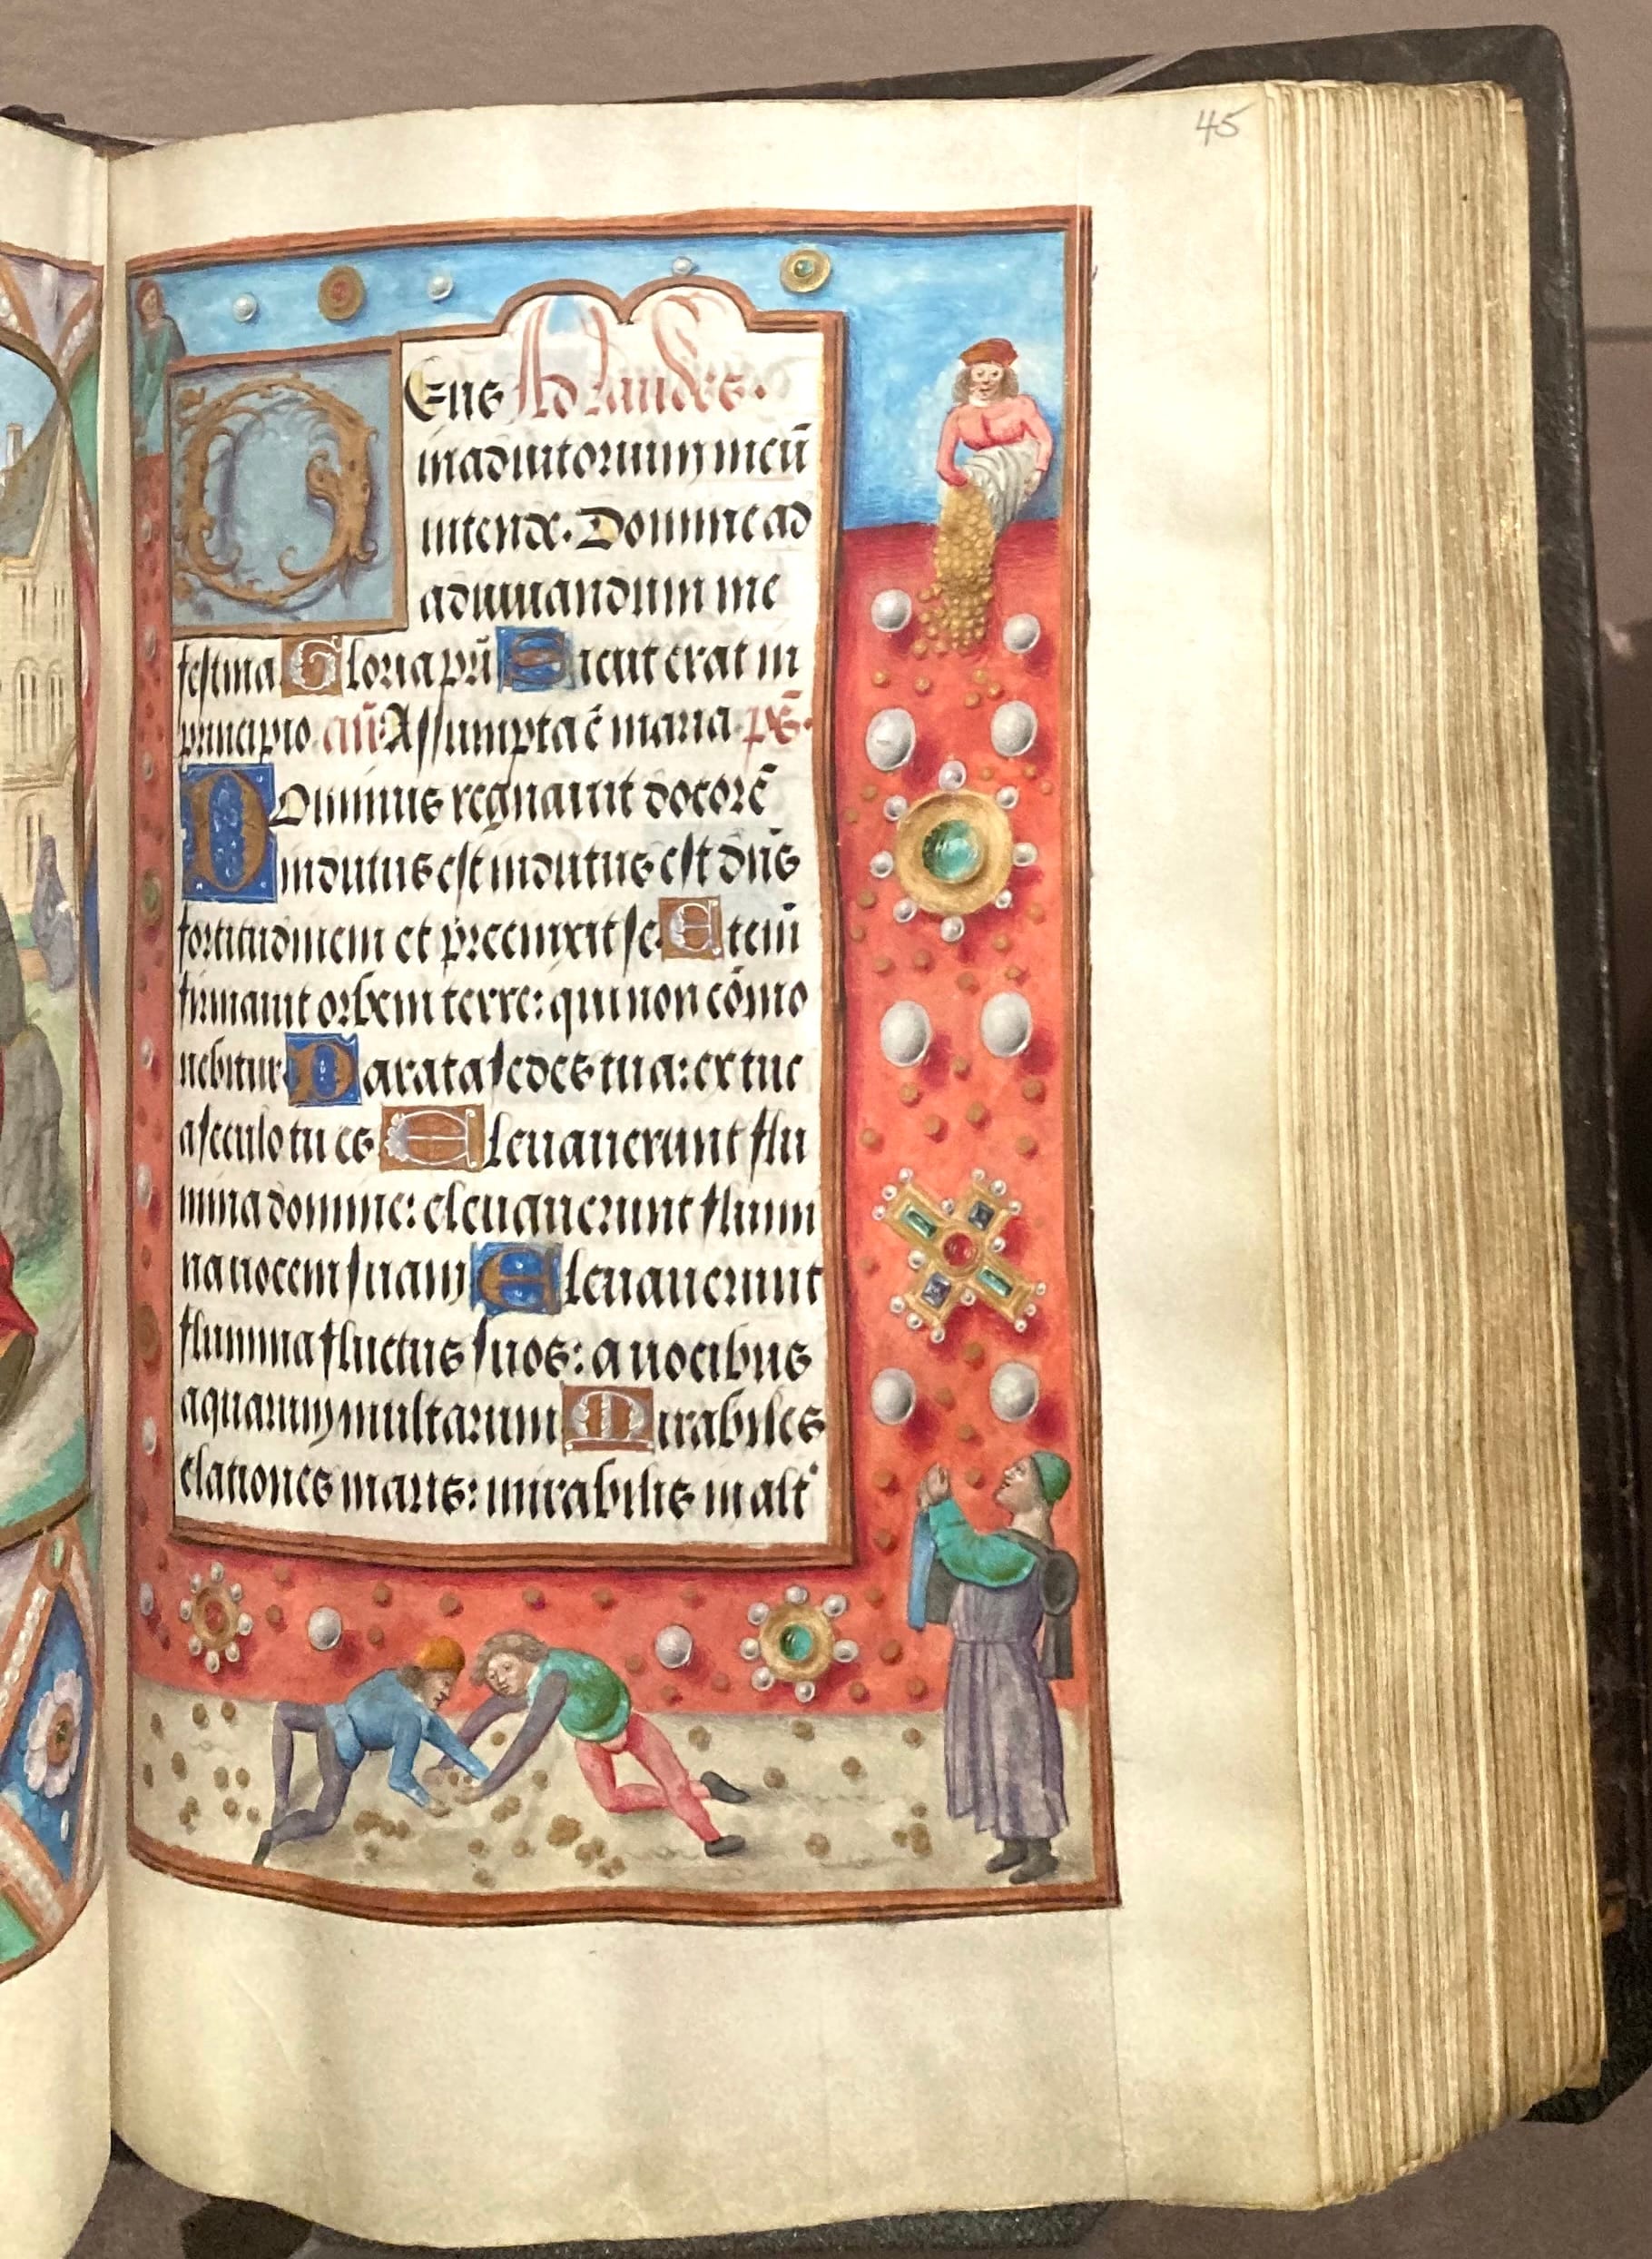 45
Deus Ad laudes.
in adiutorium meū
intende. Domine ad
adiuuandum me
festina Gloria pri Sicut erat in
principio añ Assumpta ē maria ps.
Dominus regnauit decorē
indutus est indutus est dn̄s
fortitudinem et precinxit se. Eteni
firmauit orbem terre: qui non cōmo
uebitur Parata sedes tua: ex tuc
a seculo tu es Eleuauerunt flu
mina domine: eleuauerunt flumi
na uocem suam Eleuauerunt
flumina fluctus suos: a uocibus
aquarum multarum Mirabiles
elationes maris: mirabilis in alt